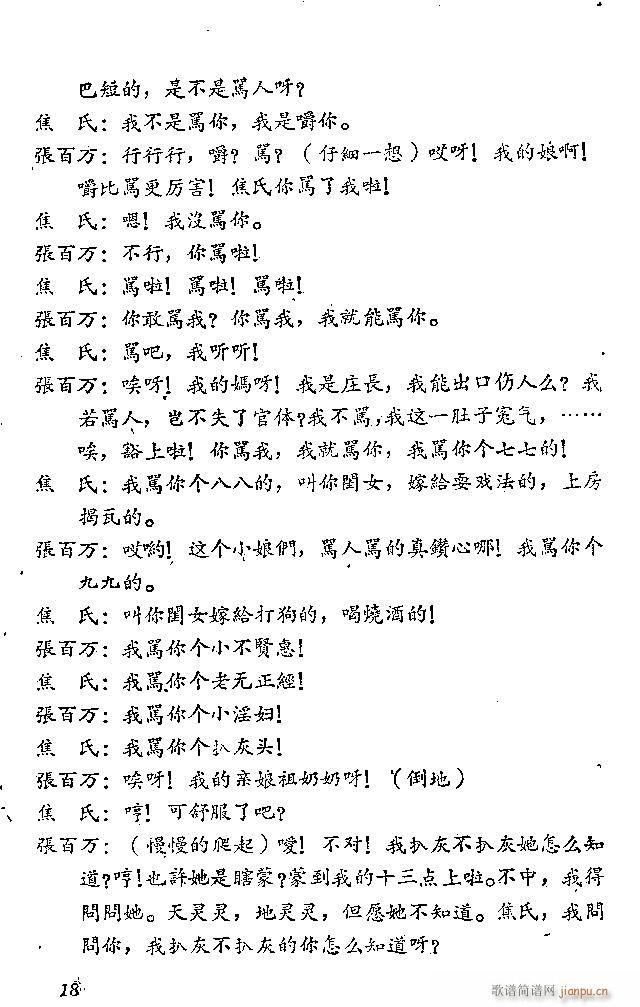 巴短的，是不是罵人呀？
焦　氏：我不是罵你，我是嚼你。
張百万：行行行，嚼？罵？（仔細一想）哎呀！我的娘啊！
嚼比罵更厉害！焦氏你罵了我啦！
焦　氏：嗯！我沒罵你。
張百万：不行，你罵啦！
焦　氏：罵啦！罵啦！罵啦！
張百万：你敢罵我？你罵我，我就能罵你。
焦　氏：罵吧，我听听！
張百万：唉呀！我的媽呀！我是庄長，我能出口伤人么？我
若罵人，岂不失了官体？我不罵，我这一肚子寃气，……
唉，豁上啦！你罵我，我就罵你，我罵你个七七的！
焦　氏：我罵你个八八的，叫你閨女，嫁給耍戏法的，上房
揭瓦的。
張百万：哎喲！这个小娘們，罵人罵的真鑽心哪！我罵你个
九九的。
焦　氏：叫你閨女嫁給打狗的，喝燒酒的！
張百万：我罵你个小不賢惠！
焦　氏：我罵你个老无正經！
張百万：我罵你个小淫妇！
焦　氏：我罵你个扒灰头！
張百万：唉呀！我的亲娘祖奶奶呀！（倒地）
焦　氏：哼！可舒服了吧？
張百万：（慢慢的爬起）噯！不对！我扒灰不扒灰她怎么知
道？哼！也許她是瞎蒙？蒙到我的十三点上啦。不中，我得
問問她。天灵灵，地灵灵，但愿她不知道。焦氏，我問
問你，我扒灰不扒灰的你怎么知道呀？
18
歌谱简谱网
jianpu.cn